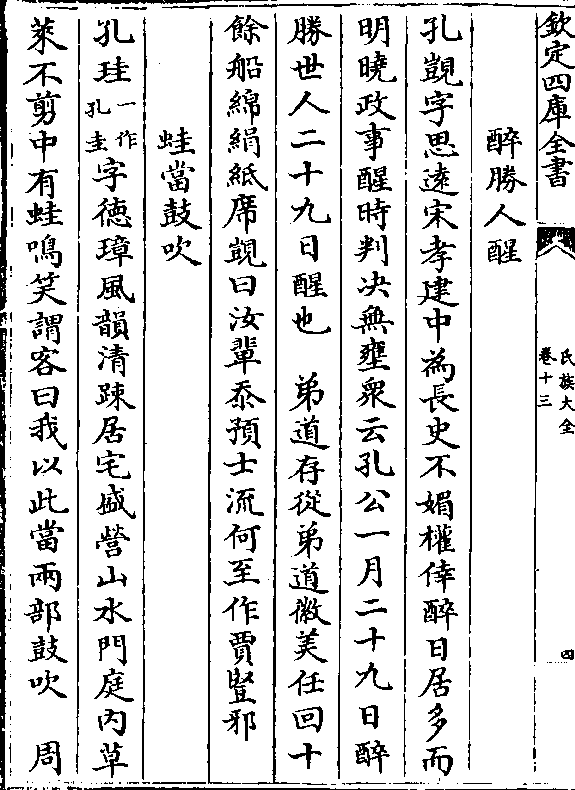 欽定四庫全書
氏族大全
卷十三
四
醉勝人醒
孔覬字思遠宋孝建中為長史不媚權倖醉日居多而
明曉政事醒時判决無壅衆云孔公一月二十九日醉
勝世人二十九日醒也　弟道存從弟道徽美任回十
餘船綿絹紙席覬曰汝輩忝預士流何至作賈豎邪
蛙當鼓吹
孔珪一作孔圭字德璋風韻清疎居宅盛營山水門庭内草
萊不剪中有蛙鳴笑謂客曰我以此當兩部鼓吹　周